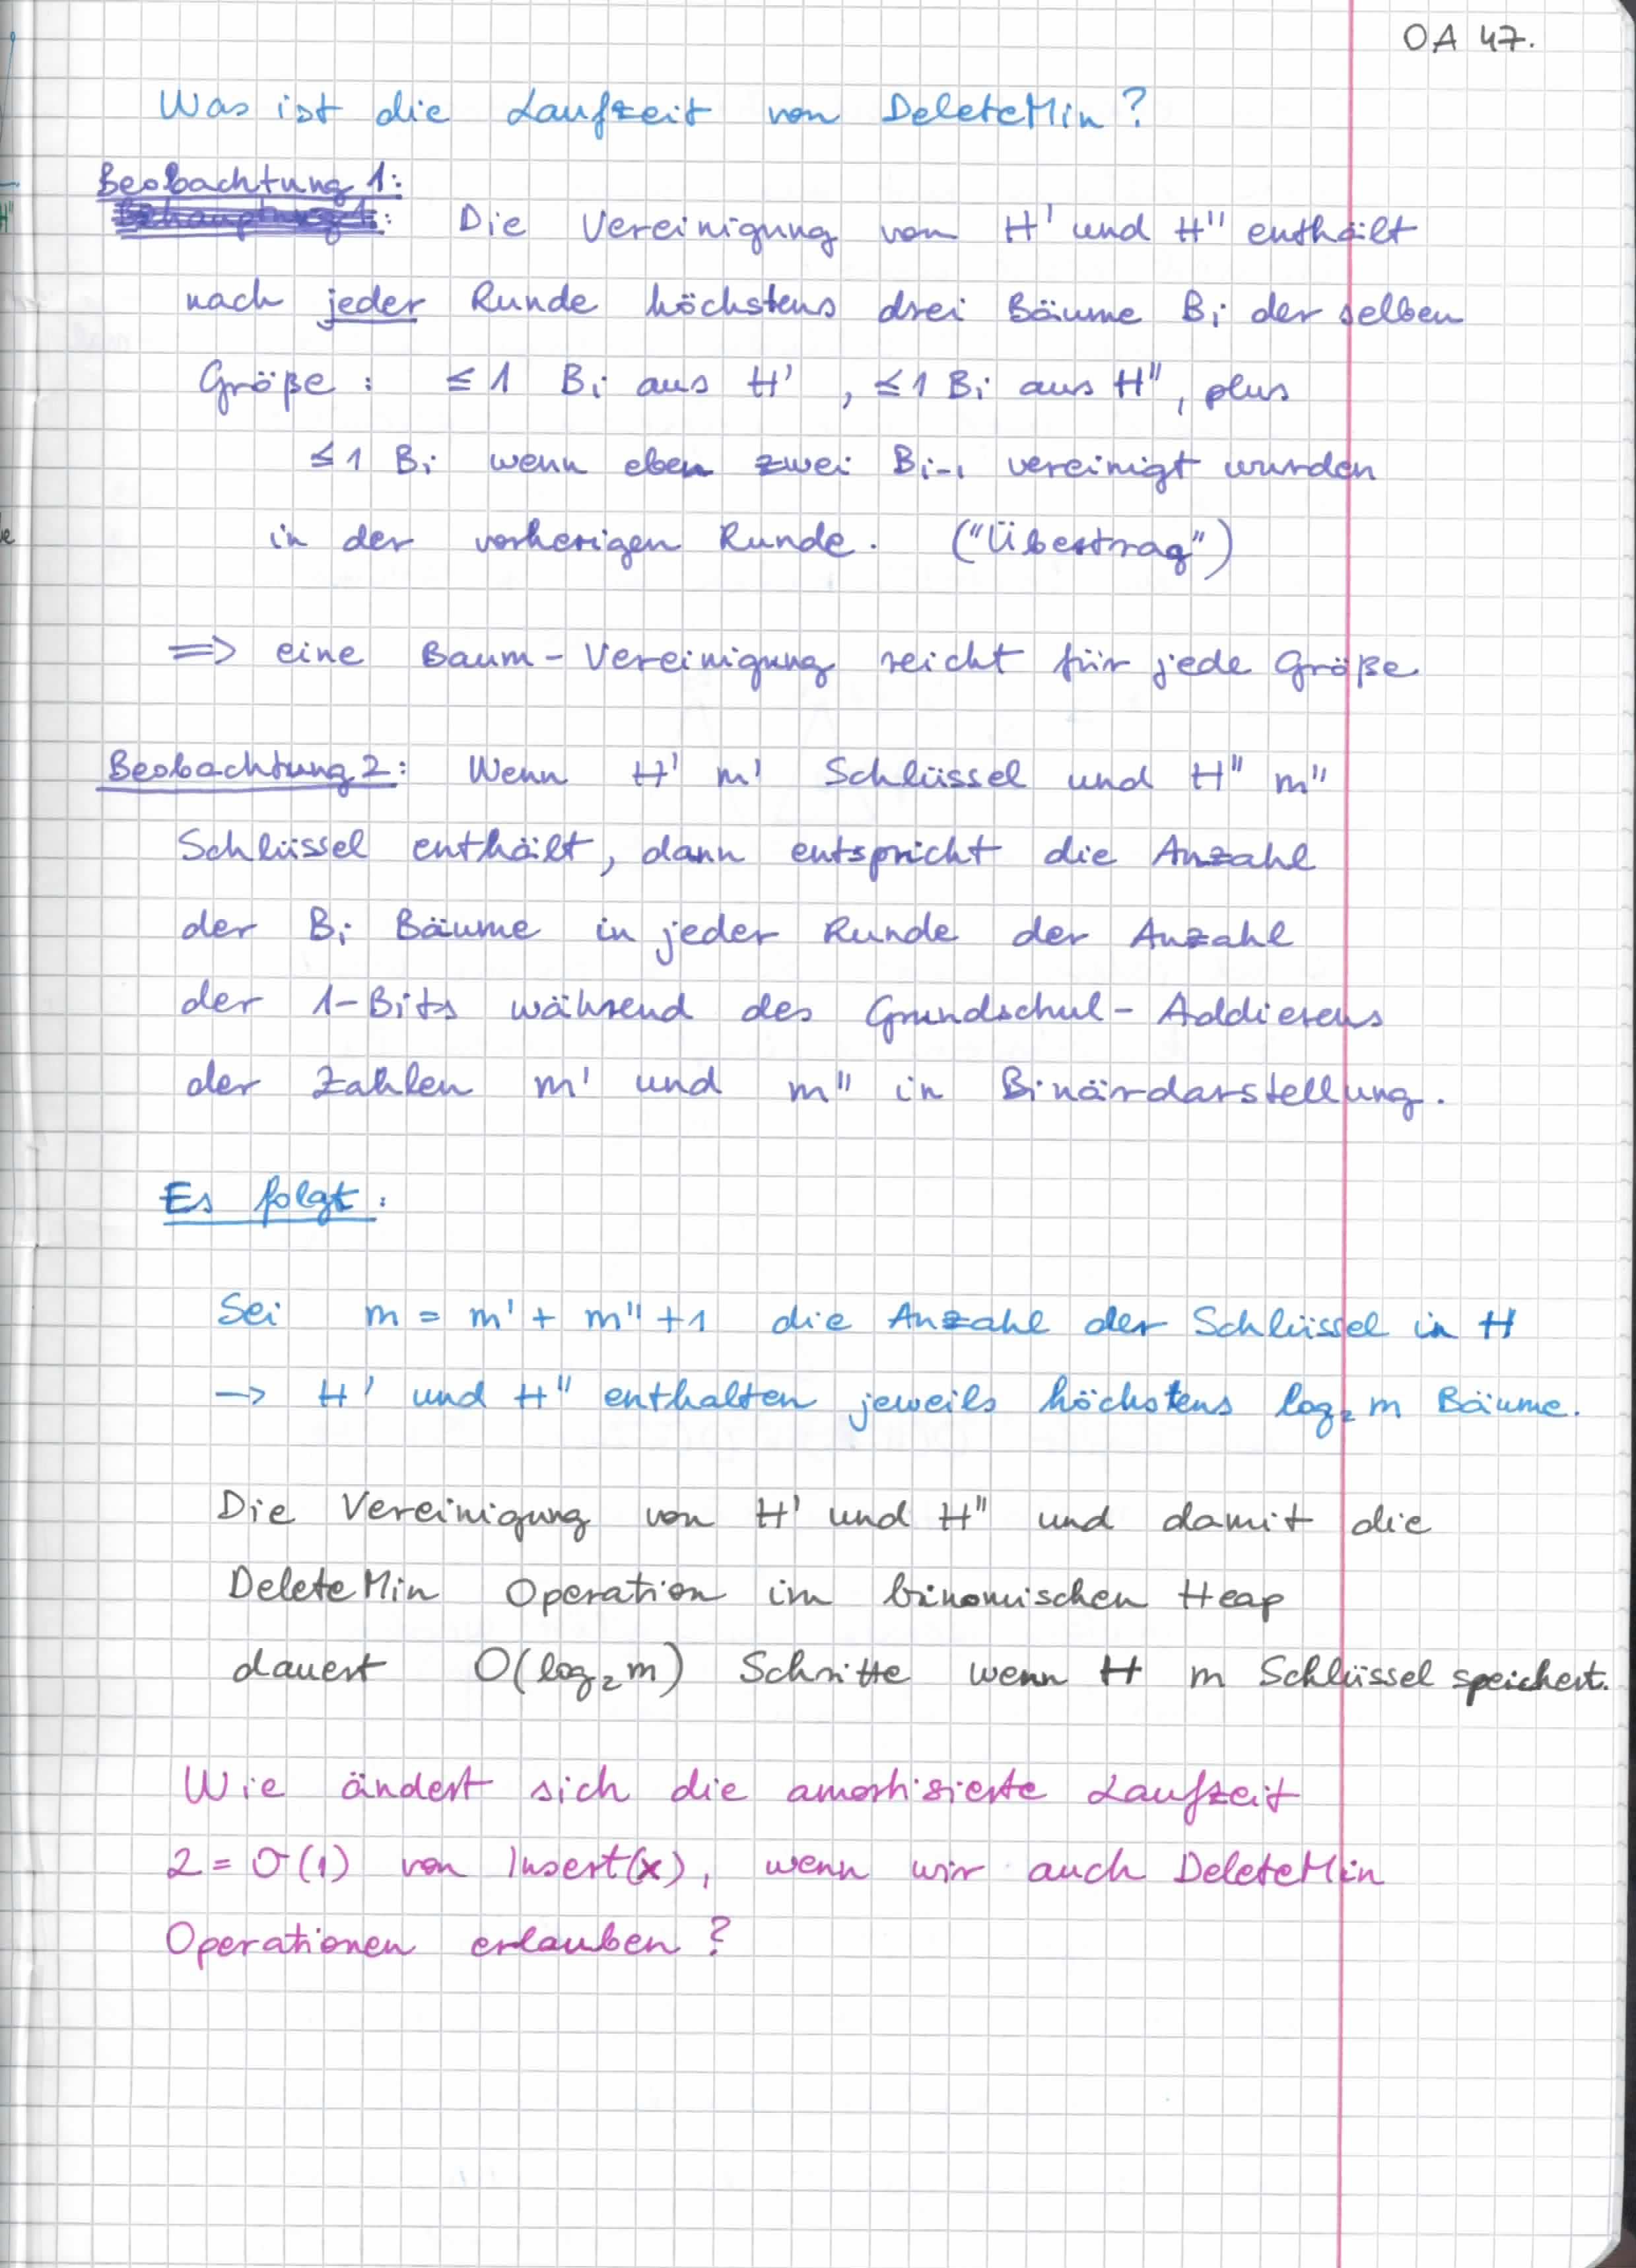 OA 47.
Was ist die Laufzeit von DeleteMin?
Beobachtung 1:
Die Vereinigung von H' und H'' enthält
nach jeder Runde höchstens drei Bäume Bi der selben
Größe: ≤ 1 Bi aus H', ≤ 1 Bi aus H'', plus
≤ 1 Bi wenn eben zwei Bi-1 vereinigt wurden
in der vorherigen Runde. ("Übertrag")
=> eine Baum-Vereinigung reicht für jede Größe
Beobachtung 2: Wenn H' m' Schlüssel und H'' m''
Schlüssel enthält, dann entspricht die Anzahl
der Bi Bäume in jeder Runde der Anzahl
der 1-Bits während des Grundschul-Addierens
der Zahlen m' und m'' in Binärdarstellung.
Es folgt:
Sei m = m' + m'' + 1 die Anzahl der Schlüssel in H
-> H' und H'' enthalten jeweils höchstens log₂ m Bäume.
Die Vereinigung von H' und H'' und damit die
DeleteMin Operation im binomischen Heap
dauert O(log₂ m) Schritte wenn H m Schlüssel speichert.
Wie ändert sich die amortisierte Laufzeit
2 = O(1) von Insert(x), wenn wir auch DeleteMin
Operationen erlauben?